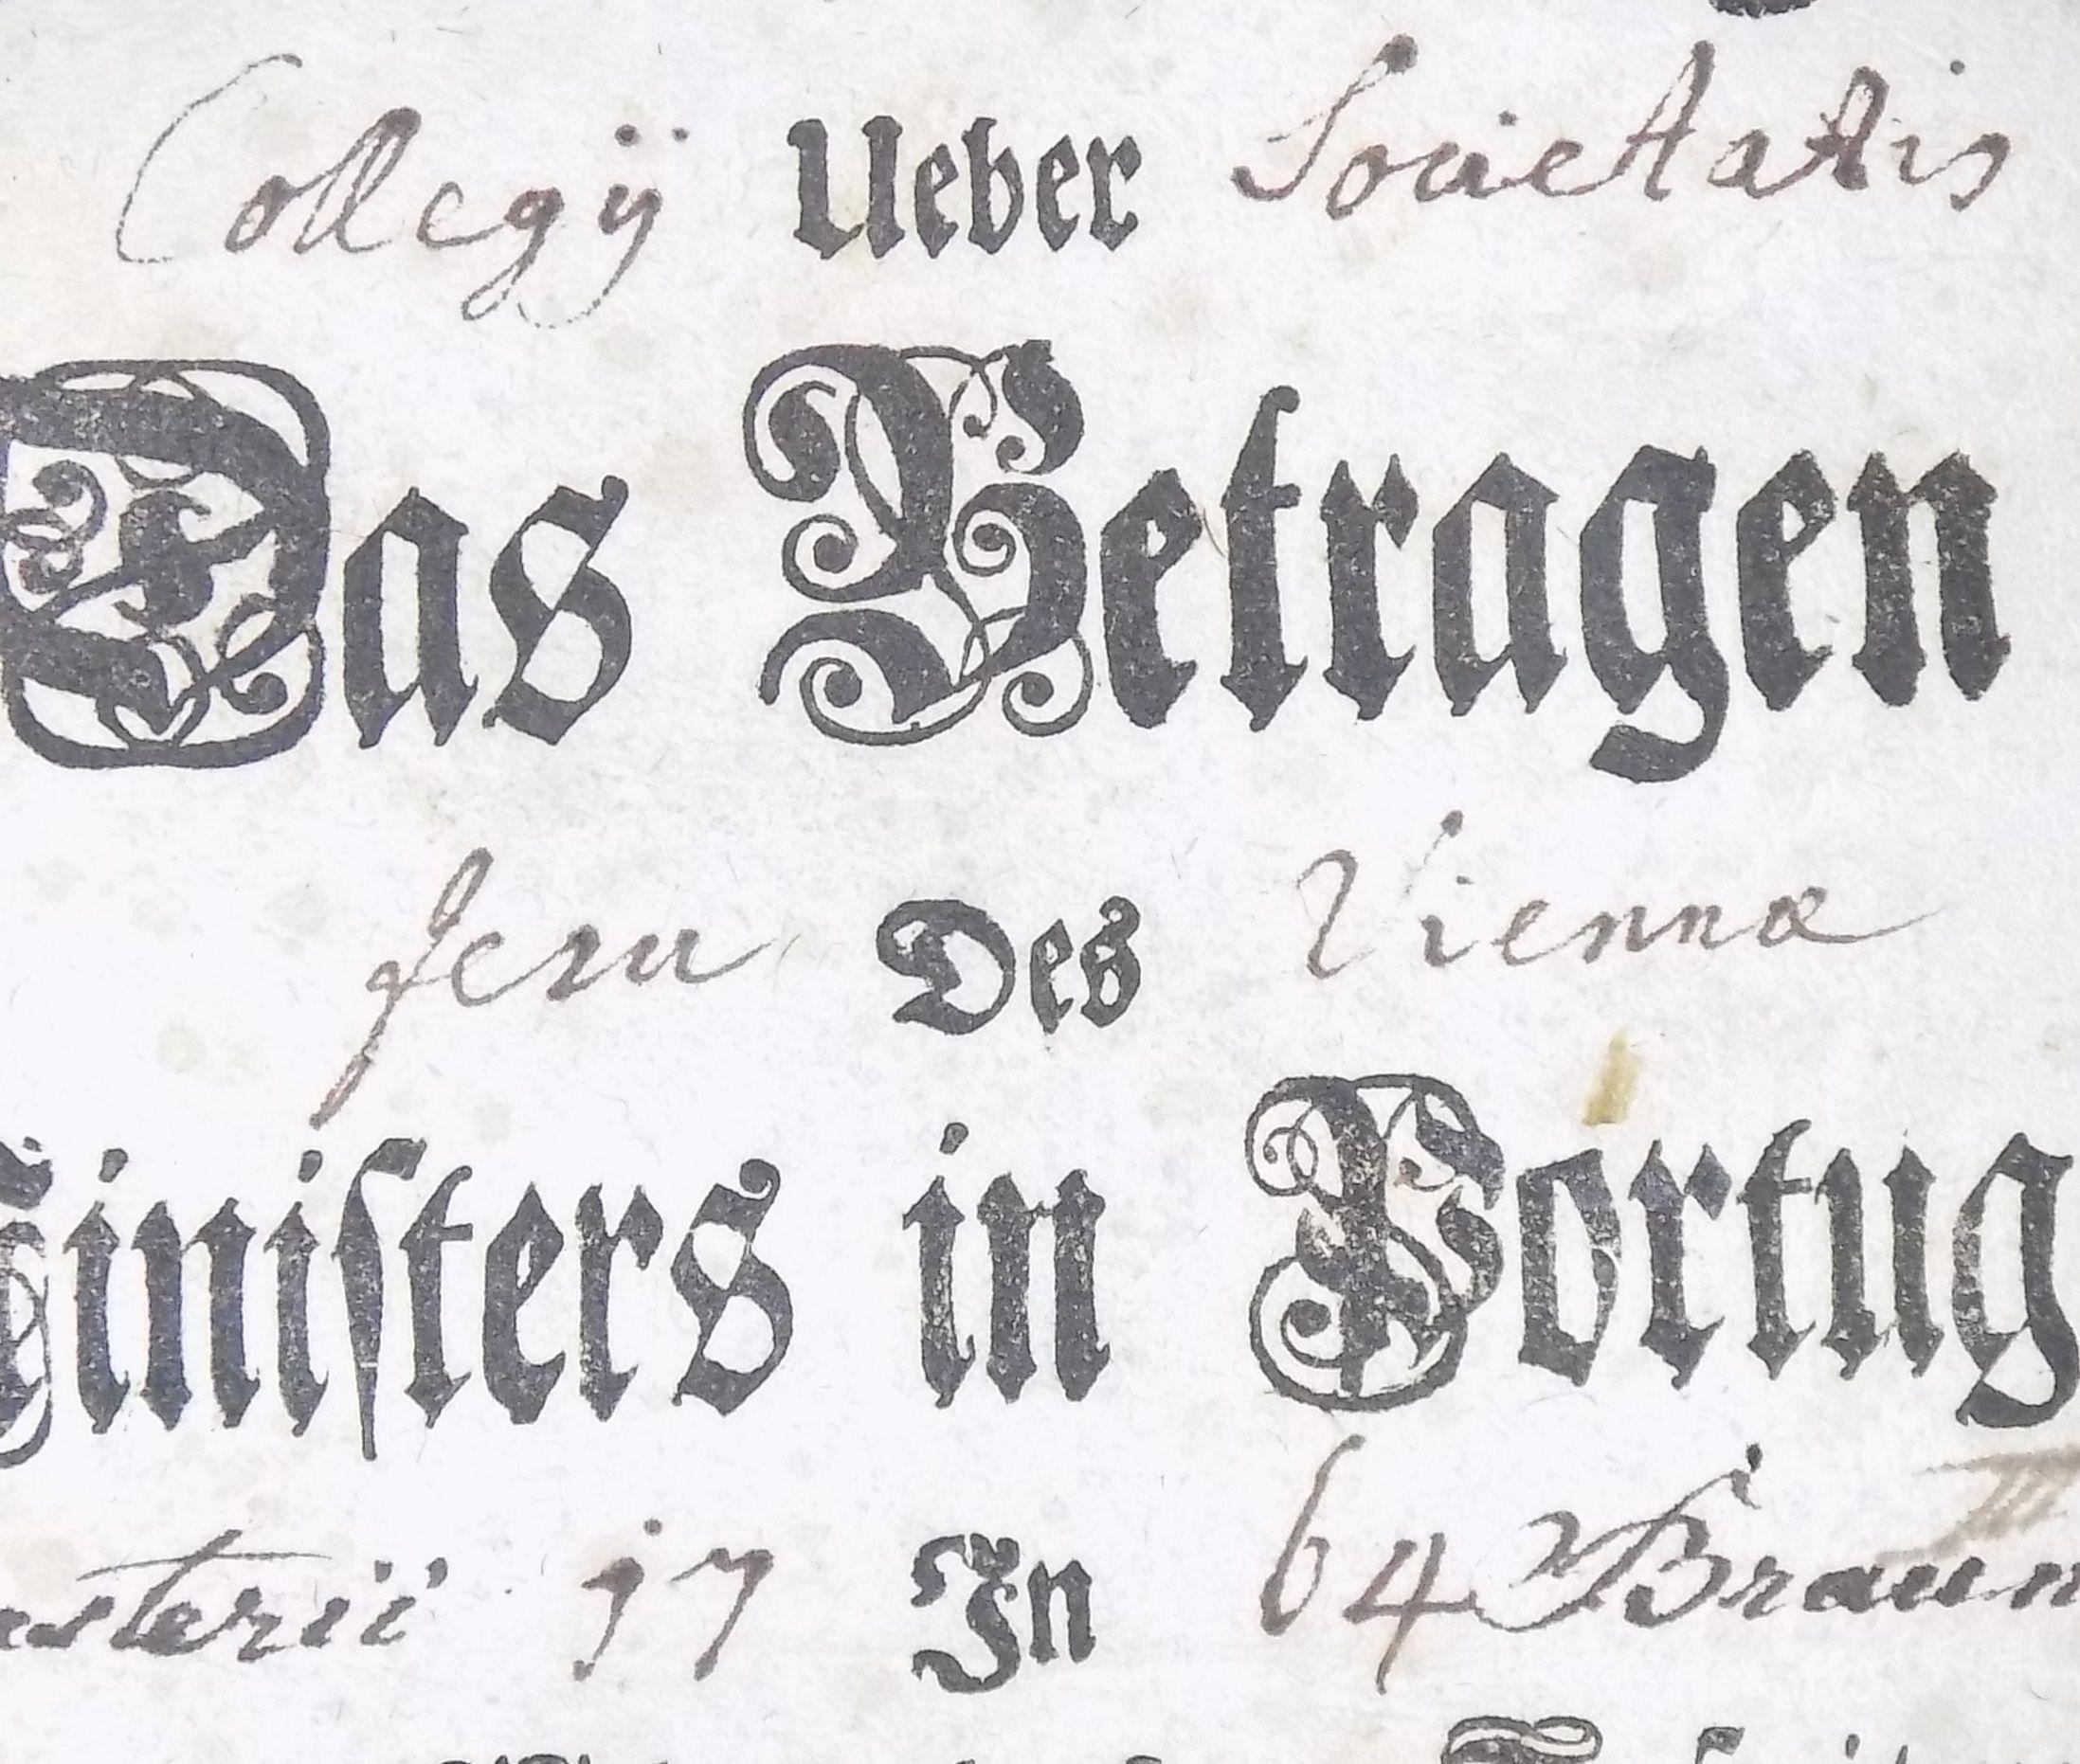 Collegÿ Ueber Societatis
Das Betragen
Jesu Des Viennæ
Ministers in Portug
asterii 17 In 64 Braun